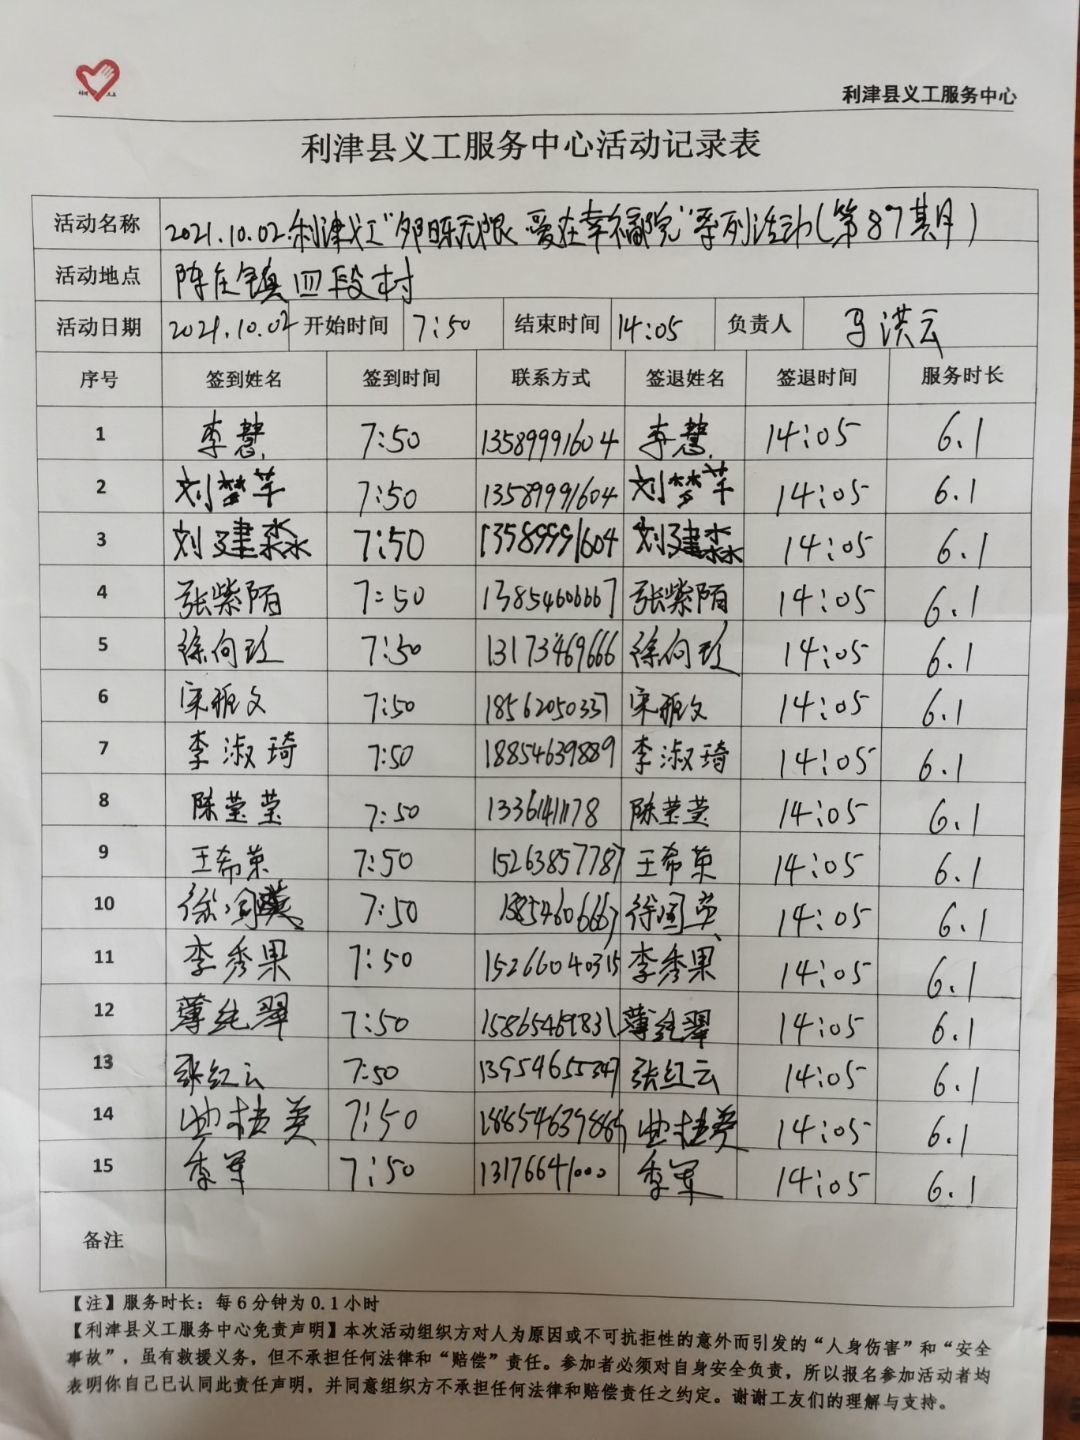 利津县义工服务中心
利津县义工服务中心活动记录表
活动名称 2021.10.02.利津义工"夕阳无限 爱在幸福院"系列活动(第87期)
活动地点 陈庄镇四段村
活动日期 2021.10.02 开始时间 7:50 结束时间 14:05 负责人 马洪云
序号 签到姓名 签到时间 联系方式 签退姓名 签退时间 服务时长
1 李慧 7:50 13589991604 李慧 14:05 6.1
2 刘梦芊 7:50 13589991604 刘梦芊 14:05 6.1
3 刘建淼 7:50 13589991604 刘建淼 14:05 6.1
4 张紫陌 7:50 13854606667 张紫陌 14:05 6.1
5 徐向玲 7:50 13173469666 徐向玲 14:05 6.1
6 宋振文 7:50 18562050337 宋振文 14:05 6.1
7 李淑琦 7:50 18854639889 李淑琦 14:05 6.1
8 陈莹莹 7:50 13361411178 陈莹莹 14:05 6.1
9 王希荣 7:50 15263857787 王希荣 14:05 6.1
10 7:50 13854606667 14:05 6.1
11 李秀果 7:50 15266040315 李秀果 14:05 6.1
12 薄纯翠 7:50 薄纯翠 14:05 6.1
13 张红云 7:50 13954655347 张红云 14:05 6.1
14 曲桂英 7:50 曲桂英 14:05 6.1
15 李军 7:50 13176641000 李军 14:05 6.1
备注
【注】服务时长：每6分钟为0.1小时
【利津县义工服务中心免责声明】本次活动组织方对人为原因或不可抗拒性的意外而引发的“人身伤害”和“安全
事故”，虽有救援义务，但不承担任何法律和“赔偿”责任。参加者必须对自身安全负责，所以报名参加活动者均
表明你自己已认同此责任声明，并同意组织方不承担任何法律和赔偿责任之约定。谢谢工友们的理解与支持。